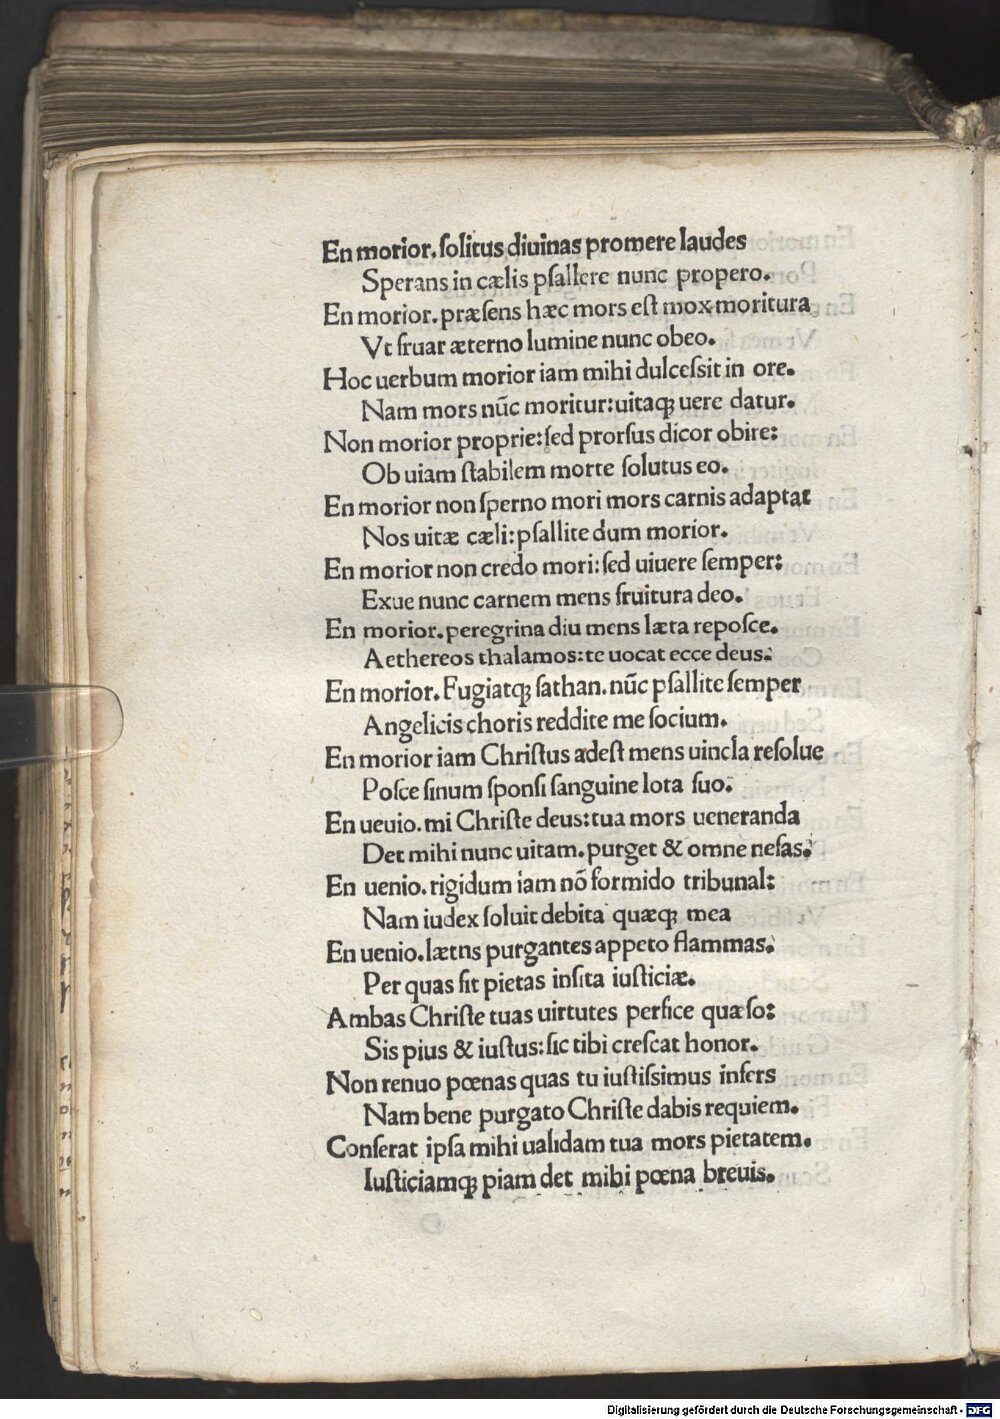 En morior. ſolitus diuinas promere laudes
Sperans in cælis pſallere nunc propero.
En morior. præſens hæc mors eſt mox moritura
Vt fruar æterno lumine nunc obeo.
Hoc uerbum morior iam mihi dulceſsit in ore.
Nam mors nūc moritur: uitaqꝫ uere datur.
Non morior proprie: ſed prorſus dicor obire:
Ob uiam ſtabilem morte ſolutus eo.
En morior non ſperno mori mors carnis adaptat
Nos uitæ cæli: pſallite dum morior.
En morior non credo mori: ſed uiuere ſemper:
Exue nunc carnem mens fruitura deo.
En morior. peregrina diu mens læta repoſce.
Aethereos thalamos: te uocat ecce deus.
En morior. Fugiatqꝫ ſathan. nūc pſallite ſemper
Angelicis choris reddite me ſocium.
En morior iam Chriſtus adeſt mens uincla reſolue
Poſce ſinum ſponſi ſanguine lota ſuo.
En ueuio. mi Chriſte deus: tua mors ueneranda
Det mihi nunc uitam. purget & omne nefas.
En uenio. rigidum iam nō formido tribunal:
Nam iudex ſoluit debita quæqꝫ mea
En uenio. lætns purgantes appeto flammas.
Per quas fit pietas inſita iuſticiæ.
Ambas Chriſte tuas uirtutes perfice quæſo:
Sis pius & iuſtus: ſic tibi creſcat honor.
Non renuo pœnas quas tu iuſtiſsimus infers
Nam bene purgato Chriſte dabis requiem.
Conferat ipſa mihi ualidam tua mors pietatem.
Iuſticiamqꝫ piam det mihi pœna breuis.
Digitalisierung gefördert durch die Deutsche Forschungsgemeinschaft - DFG